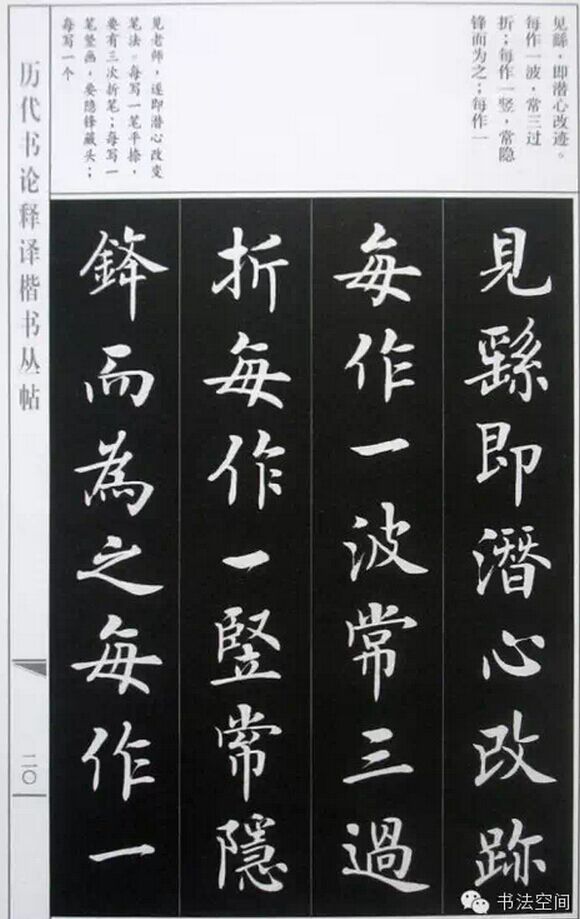 见繇，即潜心改迹。
每作一波，常三过
折；每作一竖，常隐
锋而为之；每作一
见老师，遂即潜心改变
笔法。每写一笔平捺，
要有三次折笔；每写一
笔竖画，要隐锋藏头；
每写一个
見繇即潛心改跡
每作一波常三過
折每作一竪常隱
鋒而為之每作一
历代书论释译楷书丛帖
二〇
书法空间